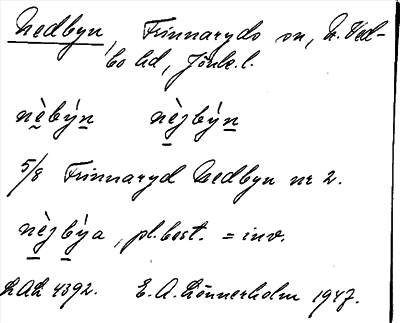 Nedbyn, Frinnaryds sn, N. Ved-
bo hd, Jönk.l.
nèbýn nèjbýn
5/8 Frinnaryd Nedbyn nr 2.
nèjbýa, pl.best. = inv.
LAL 4392. E. A. Lönnerholm 1947.